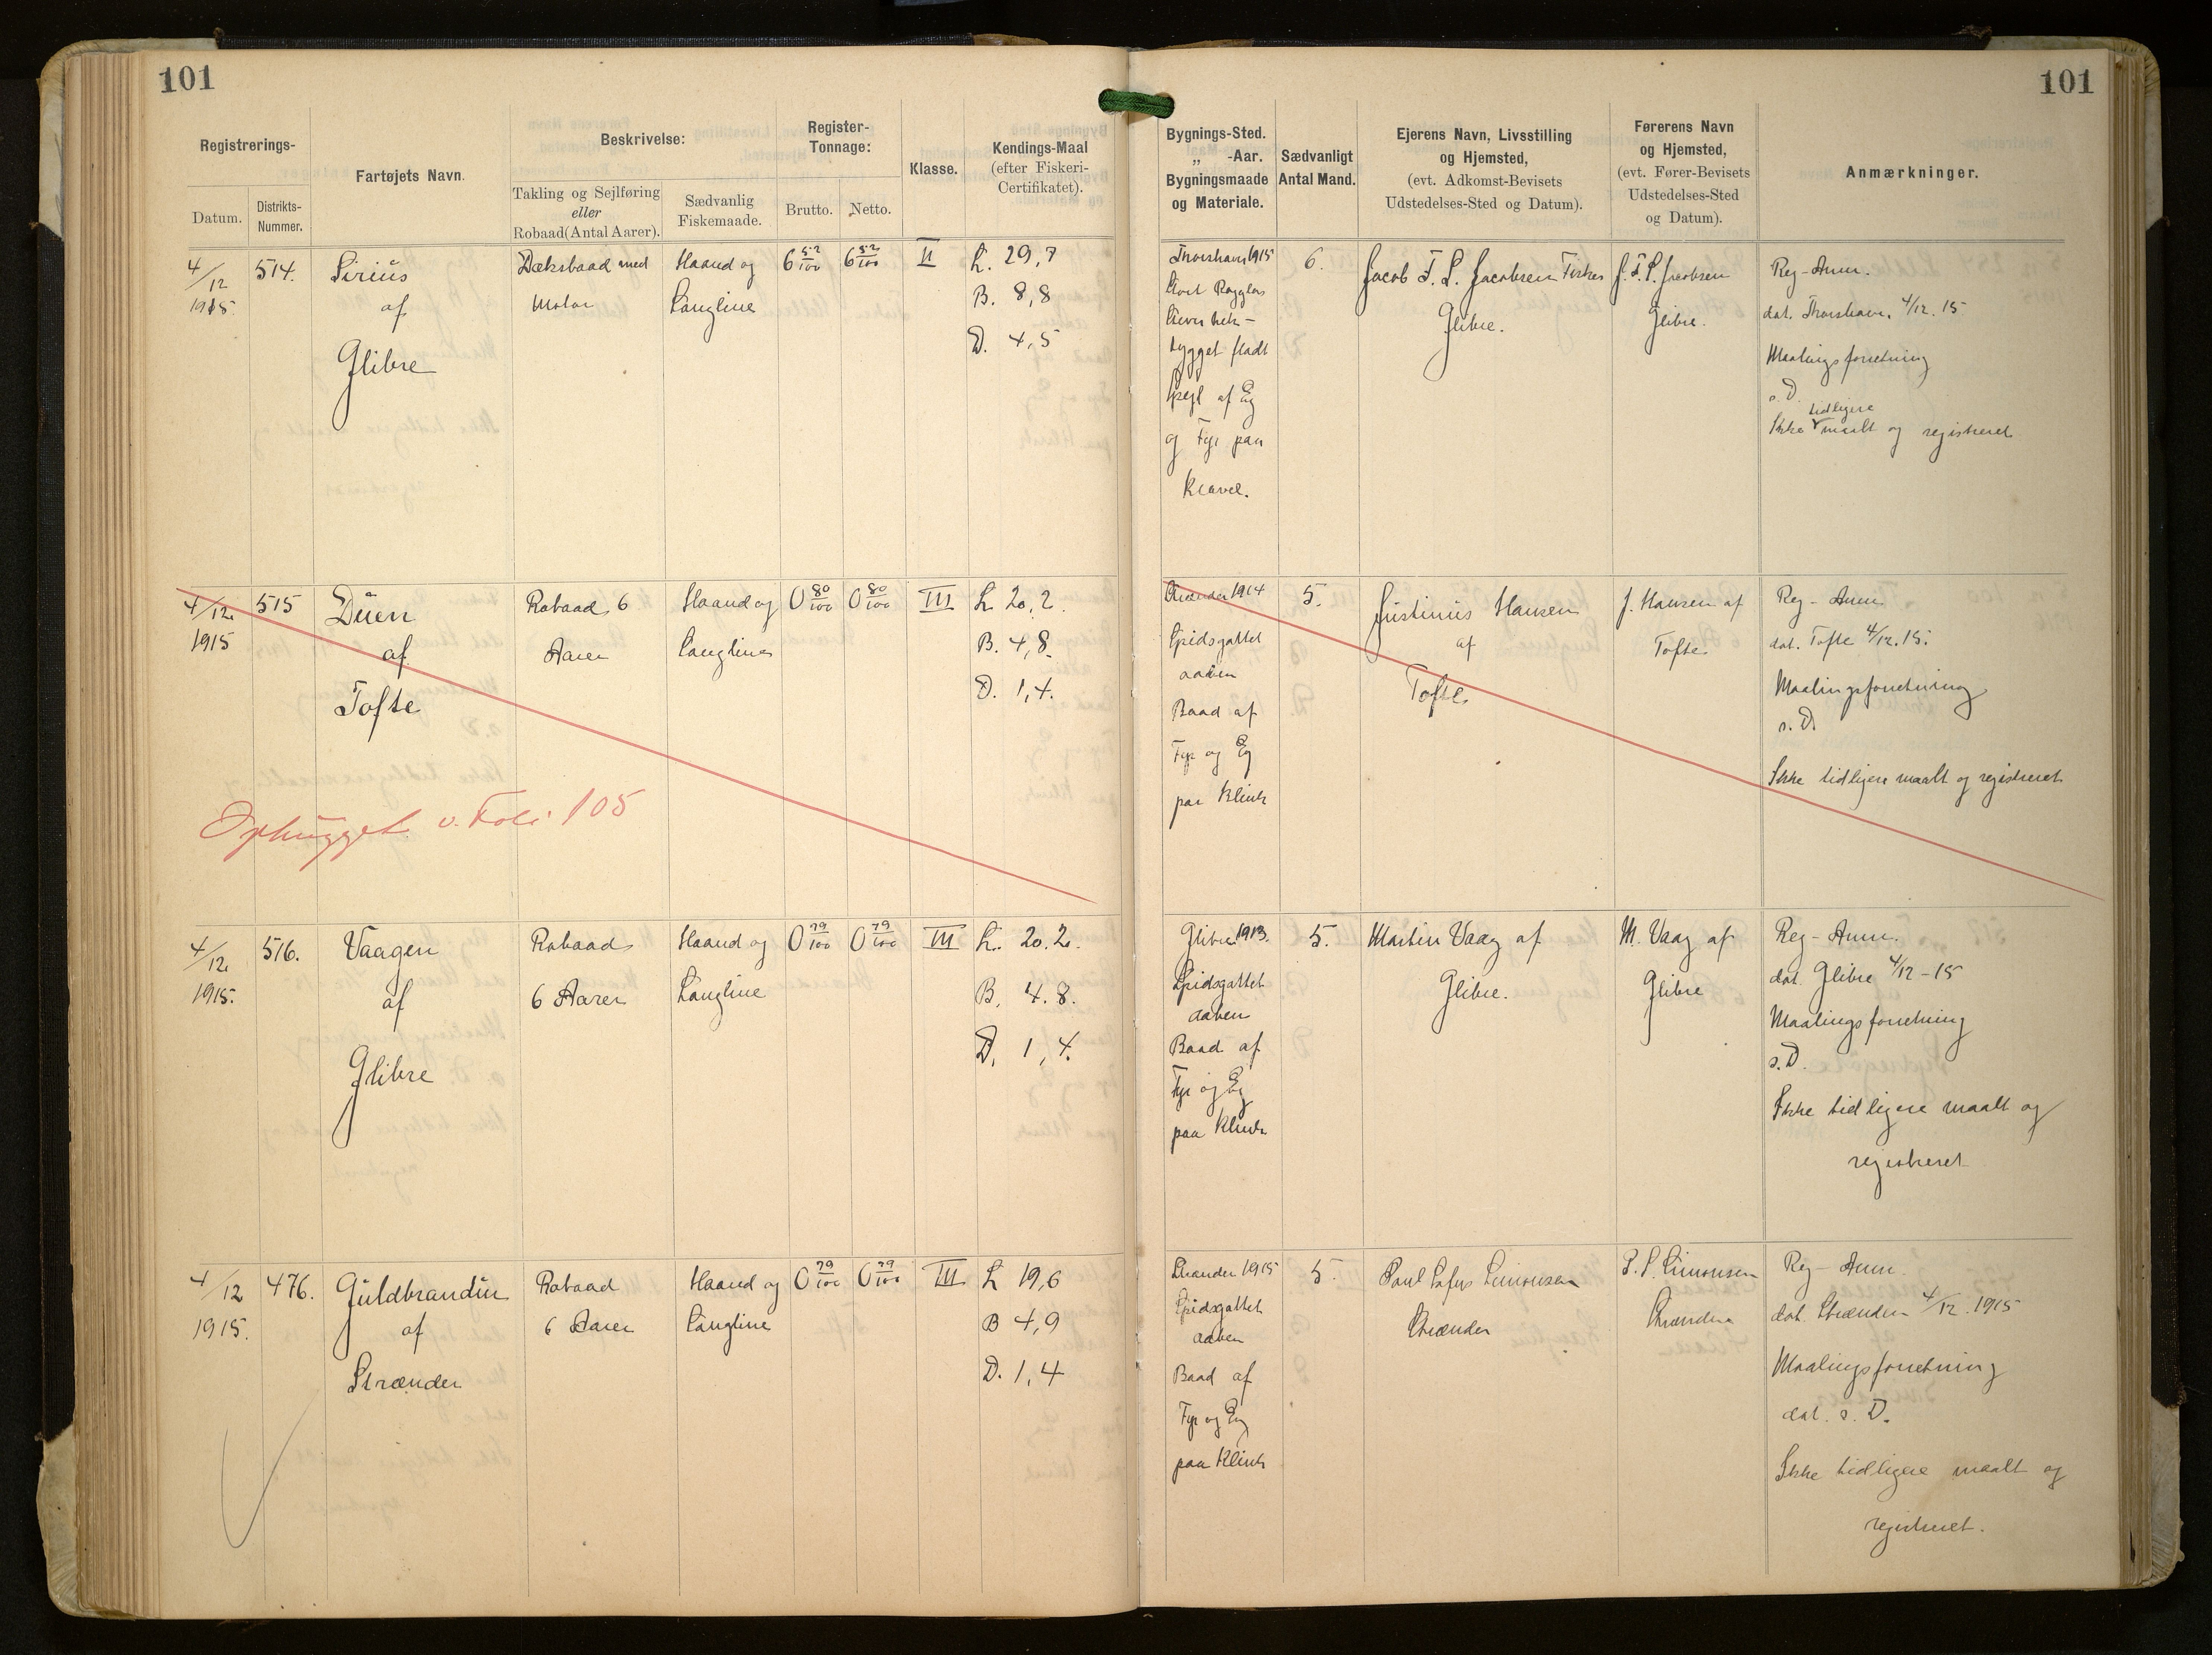 101
101
Registrerings-
Datum.
Distrikts-
Nummer.
Fartøjets Navn.
Beskrivelse:
Takling og Sejlføring
eller
Robaad (Antal Aarer).
Sædvanlig
Fiskemaade.
Register-
Tonnage:
Brutto.
Netto.
Klasse.
Kendings-Maal
(efter Fiskeri-
Certifikatet).
Bygnings-Sted.
„ -Aar.
Bygningsmaade
og Materiale.
Sædvanligt
Antal Mand.
Ejerens Navn, Livsstilling
og Hjemsted,
(evt. Adkomst-Bevisets
Udstedelses-Sted og Datum).
Førerens Navn
og Hjemsted,
(evt. Fører-Bevisets
Udstedelses-Sted
og Datum).
Anmærkninger.
4/12
1915
514.
Sirius
af
Glibre
Dæksbaad med
Motor
Haand og
Langline
6 52/100
6 52/100
II
L. 29,7
B. 8,8
D. 4,5
Thorshavn 1915
bygget fladt
Spejl af Eg
og Fyr paa
Kravel.
6.
Jacob F. L. Jacobsen
Glibre.
J. F. L. Jacobsen
Glibre.
Reg-Anm.
dat. Thorshavn 4/12. 15
Maalingsforretning
s. D.
Ikke tidligere maalt og registreret
4/12
1915
515
Duen
af
Tofte
Robaad 6
Aarer
Haand og
Langline
0 80/100
0 80/100
III
L 20,2.
B. 4,8.
D. 1,4.
Strænder 1914
Spidsgattet
aaben
Baad af
Fyr og Eg
paa Klink
5.
Justinus Hansen
af
Tofte
J. Hansen af
Tofte
Reg-Anm
dat. Tofte 4/12. 15.
Maalingsforretning
s. D.
Ikke tidligere maalt og registreret
Ophugget v. Foli. 105
4/12
1915.
516.
Vaagen
af
Glibre
Robaad
6 Aarer
Haand og
Langline
0 79/100
0 79/100
III
L. 20.2.
B. 4.8.
D. 1,4.
Glibre 1913.
Spidsgattet
aaben
Baad af
Fyr og Eg
paa Klink
5.
Martin Vaag af
Glibre.
M. Vaag af
Glibre
Reg-Anm.
dat. Glibre 4/12-15
Maalingsforretning
s. D.
Ikke tidligere maalt og
registreret
4/12
1915.
476.
Guldbrandur
af
Strænder
Robaad
6 Aarer
Haand og
Langline
0 79/100
0 79/100
III
L 19,6
B 4,9
D. 1,4
Strænder 1915
Spidsgattet
aaben
Baad af
Fyr og Eg
paa Klink
5.
Poul Simonsen
Strænder
P. S. Simonsen
Strænder
Reg-Anm.
dat. Strænder 4/12. 1915
Maalingsforretning
dat. s. D.
Ikke tidligere maalt og
registreret.